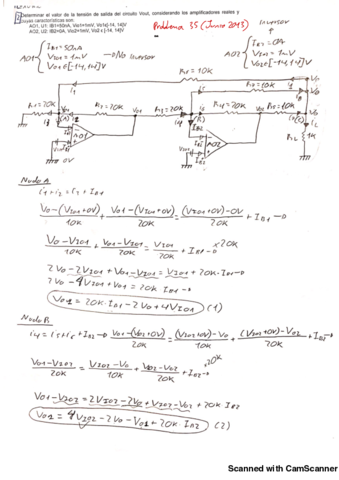 Determinar el valor de la tensión de salida del circuito Vout, considerando los amplificadores reales y
cuyas características son:
AO1, U1: IB1=50nA, Vio1=1mV, Vo1∈[-14, 14]V
AO2, U2: IB2=0A, Vio2=1mV, Vo2 ∈ [-14, 14]V
Problema 35 (Junio 2013)
Inversor
AO1 { IB1=50nA
VIO1=1mV → No Inversor
VO1∈[-14,14]V
AO2 { IB2=0A
VIO2=1mV
VO2∈[-14,14]V
R5=10K
R1=20K
R2=20K
R3=20K
R4=20K
RL 1K
AO1
AO2
0V
Nodo A
i1+i2=i3+IB1
Vo-(VIO1+0V)/10K + VO1-(VIO1+0V)/20K = (VIO1+0V)-0V/20K + IB1→
Vo-VIO1/10K + VO1-VIO1/20K = VIO1/20K + IB1→ ×20K
2Vo-2VIO1+VO1-VIO1=VIO1+20K·IB1→
2Vo-4VIO1+VO1=20K IB1→
VO1=20K·IB1-2Vo+4VIO1 (1)
Nodo B
i4=i5+i6+IB2→ VO1-(VIO2+0V)/20K = (VIO2+0V)-Vo/10K + (VIO2+0V)-VO2/20K + IB2→
VO1-VIO2/20K = VIO2-Vo/10K + VIO2-VO2/20K + IB2→ ×20K
VO1-VIO2=2VIO2-2Vo+VIO2-VO2+20K IB2
VO1=4VIO2-2Vo-VO2+20K·IB2 (2)
Scanned with CamScanner